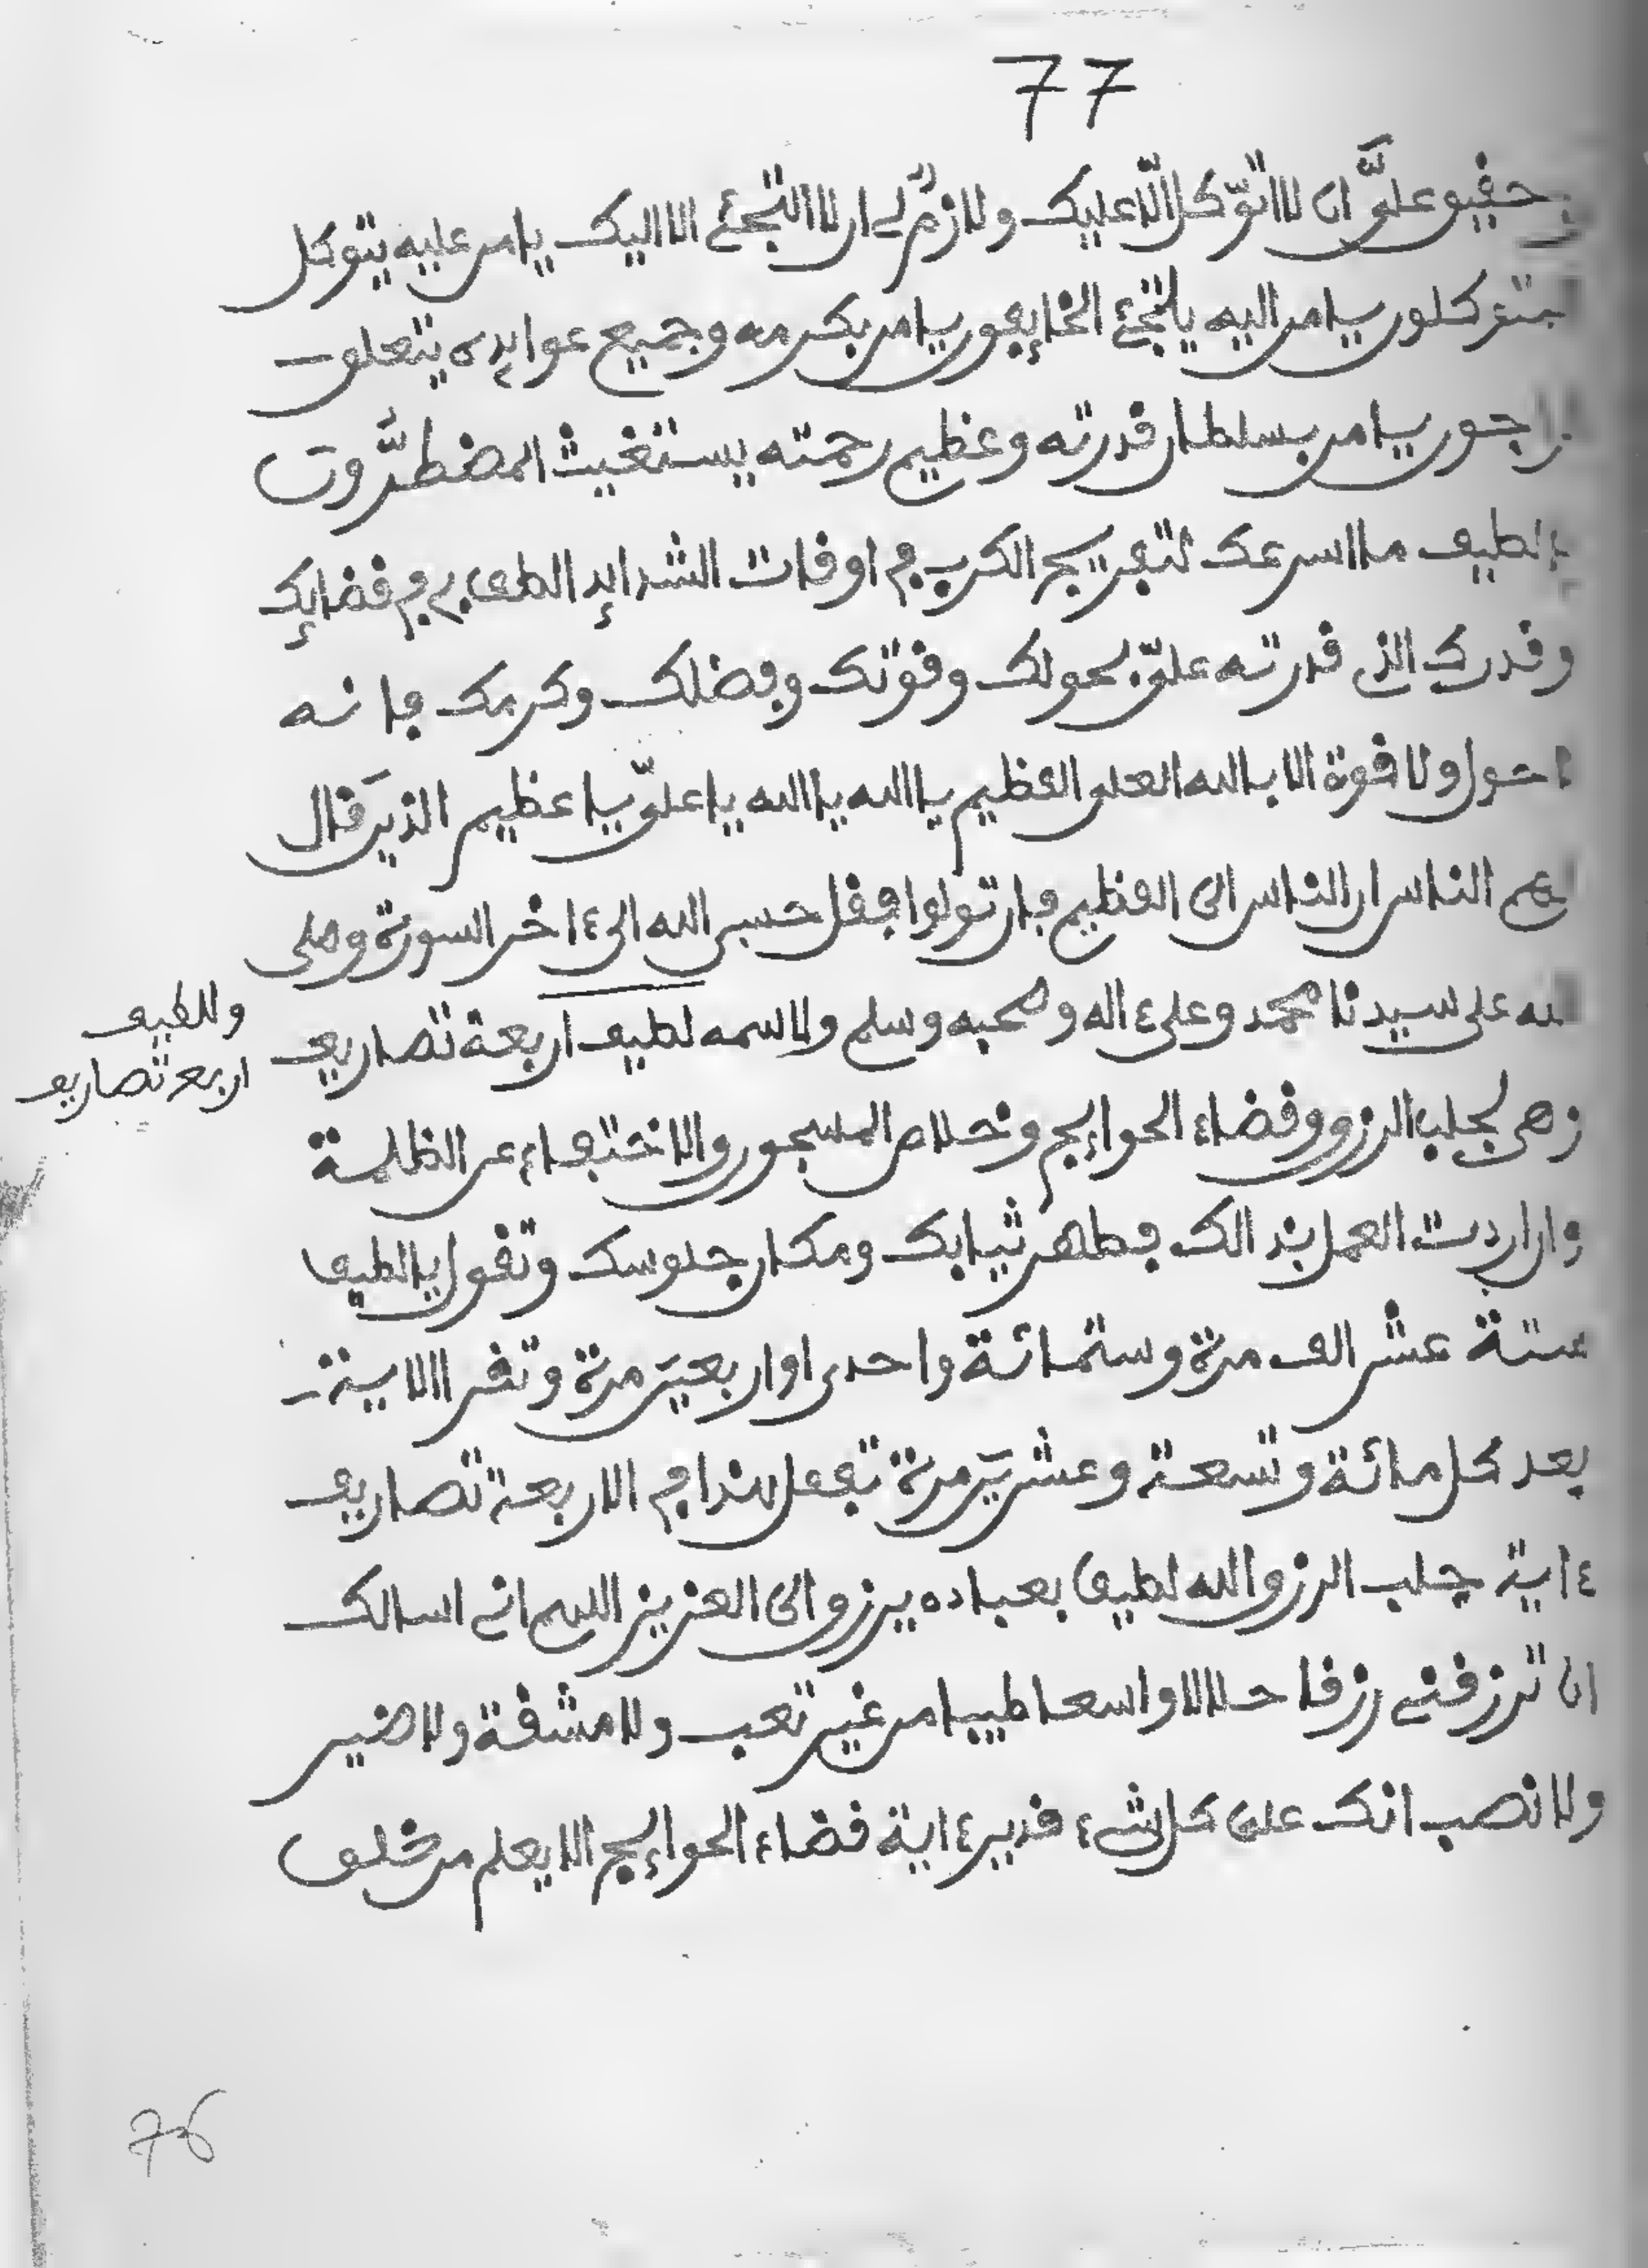 77
حقيق عليَّ ان لا اتوّكل الّا عليك ولازمٌ لي ان لا التجئ الا اليك يا من عليه يتوكل
المتوكلون يا من اليه يلتجئ الخايفون يا من بكرمه وجميع عوايده يتعلق
الراجون يا من بسلطان قدرته وعظيم رحمته يستغيث المضطرُّون
يا لطيف ما اسرعك لتفريج الكرب في اوقات الشدايد الطف بي في قضايك
وقدرك الذي قدرته عليّ بحولك وقوتك وفضلك وكرمك فانه
لا حول ولا قوة الا بالله العلي العظيم يا الله يا الله يا عليّ يا عظيم الذين قال
لهم الناس ان الناس الى العظيم فان تولوا فقل حسبي الله الى ءاخر السورة وصلى
الله على سيدنا محمد وعلى ءاله وصحبه وسلم ولاسمه لطيف اربعة تصاريف
وللطيف
اربعة تصاريف
وهي لجلب الرزق وقضاء الحوايج وخلاص المسجون والاختفاء عن الظلمة
وان اردت العمل بذالك فطهر ثيابك ومكان جلوسك وتقول يا لطيف
ستة عشر الف مرة وستمائة واحدى اواربعين مرة وتقرا الاية
بعد كل مائة وتسعة وعشرين مرة تفعل هذا في الاربعة تصاريف
ءاية جلب الرزق الله لطيف بعباده يرزق الى العزيز اللهم اني اسالك
ان ترزقني رزقا حلالا واسعا طيبا من غير تعب ولا مشقة ولا ضير
ولا نصب انك على كل شيء قدير ءاية قضاء الحوايج الا يعلم من خلق
76